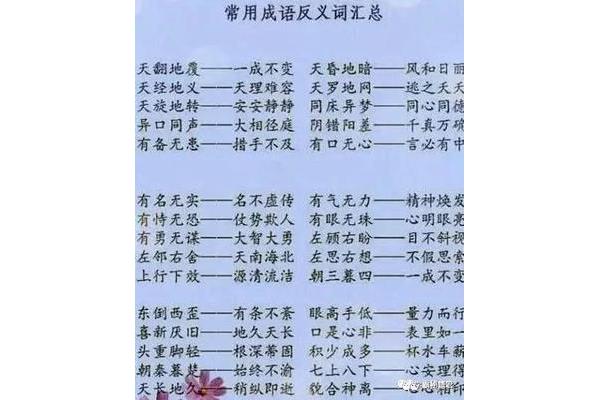 常用成语反义词汇总
天翻地覆——一成不变 天昏地暗——风和日丽
天经地义——天理难容 天罗地网——逃之夭夭
天旋地转——安安静静 同床异梦——同心同德
异口同声——大相径庭 阴错阳差——千真万确
有备无患——措手不及 有口无心——言必有中
有名无实——名不虚传 有气无力——精神焕发
有恃无恐——仗势欺人 有眼无珠——心明眼亮
有勇无谋——大智大勇 左顾右盼——目不斜视
左邻右舍——天南海北 左思右想——不假思索
上行下效——源清流洁 朝三暮四——一成不变
东倒西歪——有条不紊 眼高手低——量力而行
喜新厌旧——地久天长 口是心非——表里如一
头重脚轻——根深蒂固 积少成多——杯水车薪
朝秦暮楚——始终不渝 七上八下——心安理得
天长地久——稍纵即逝 貌合神离——心心相印